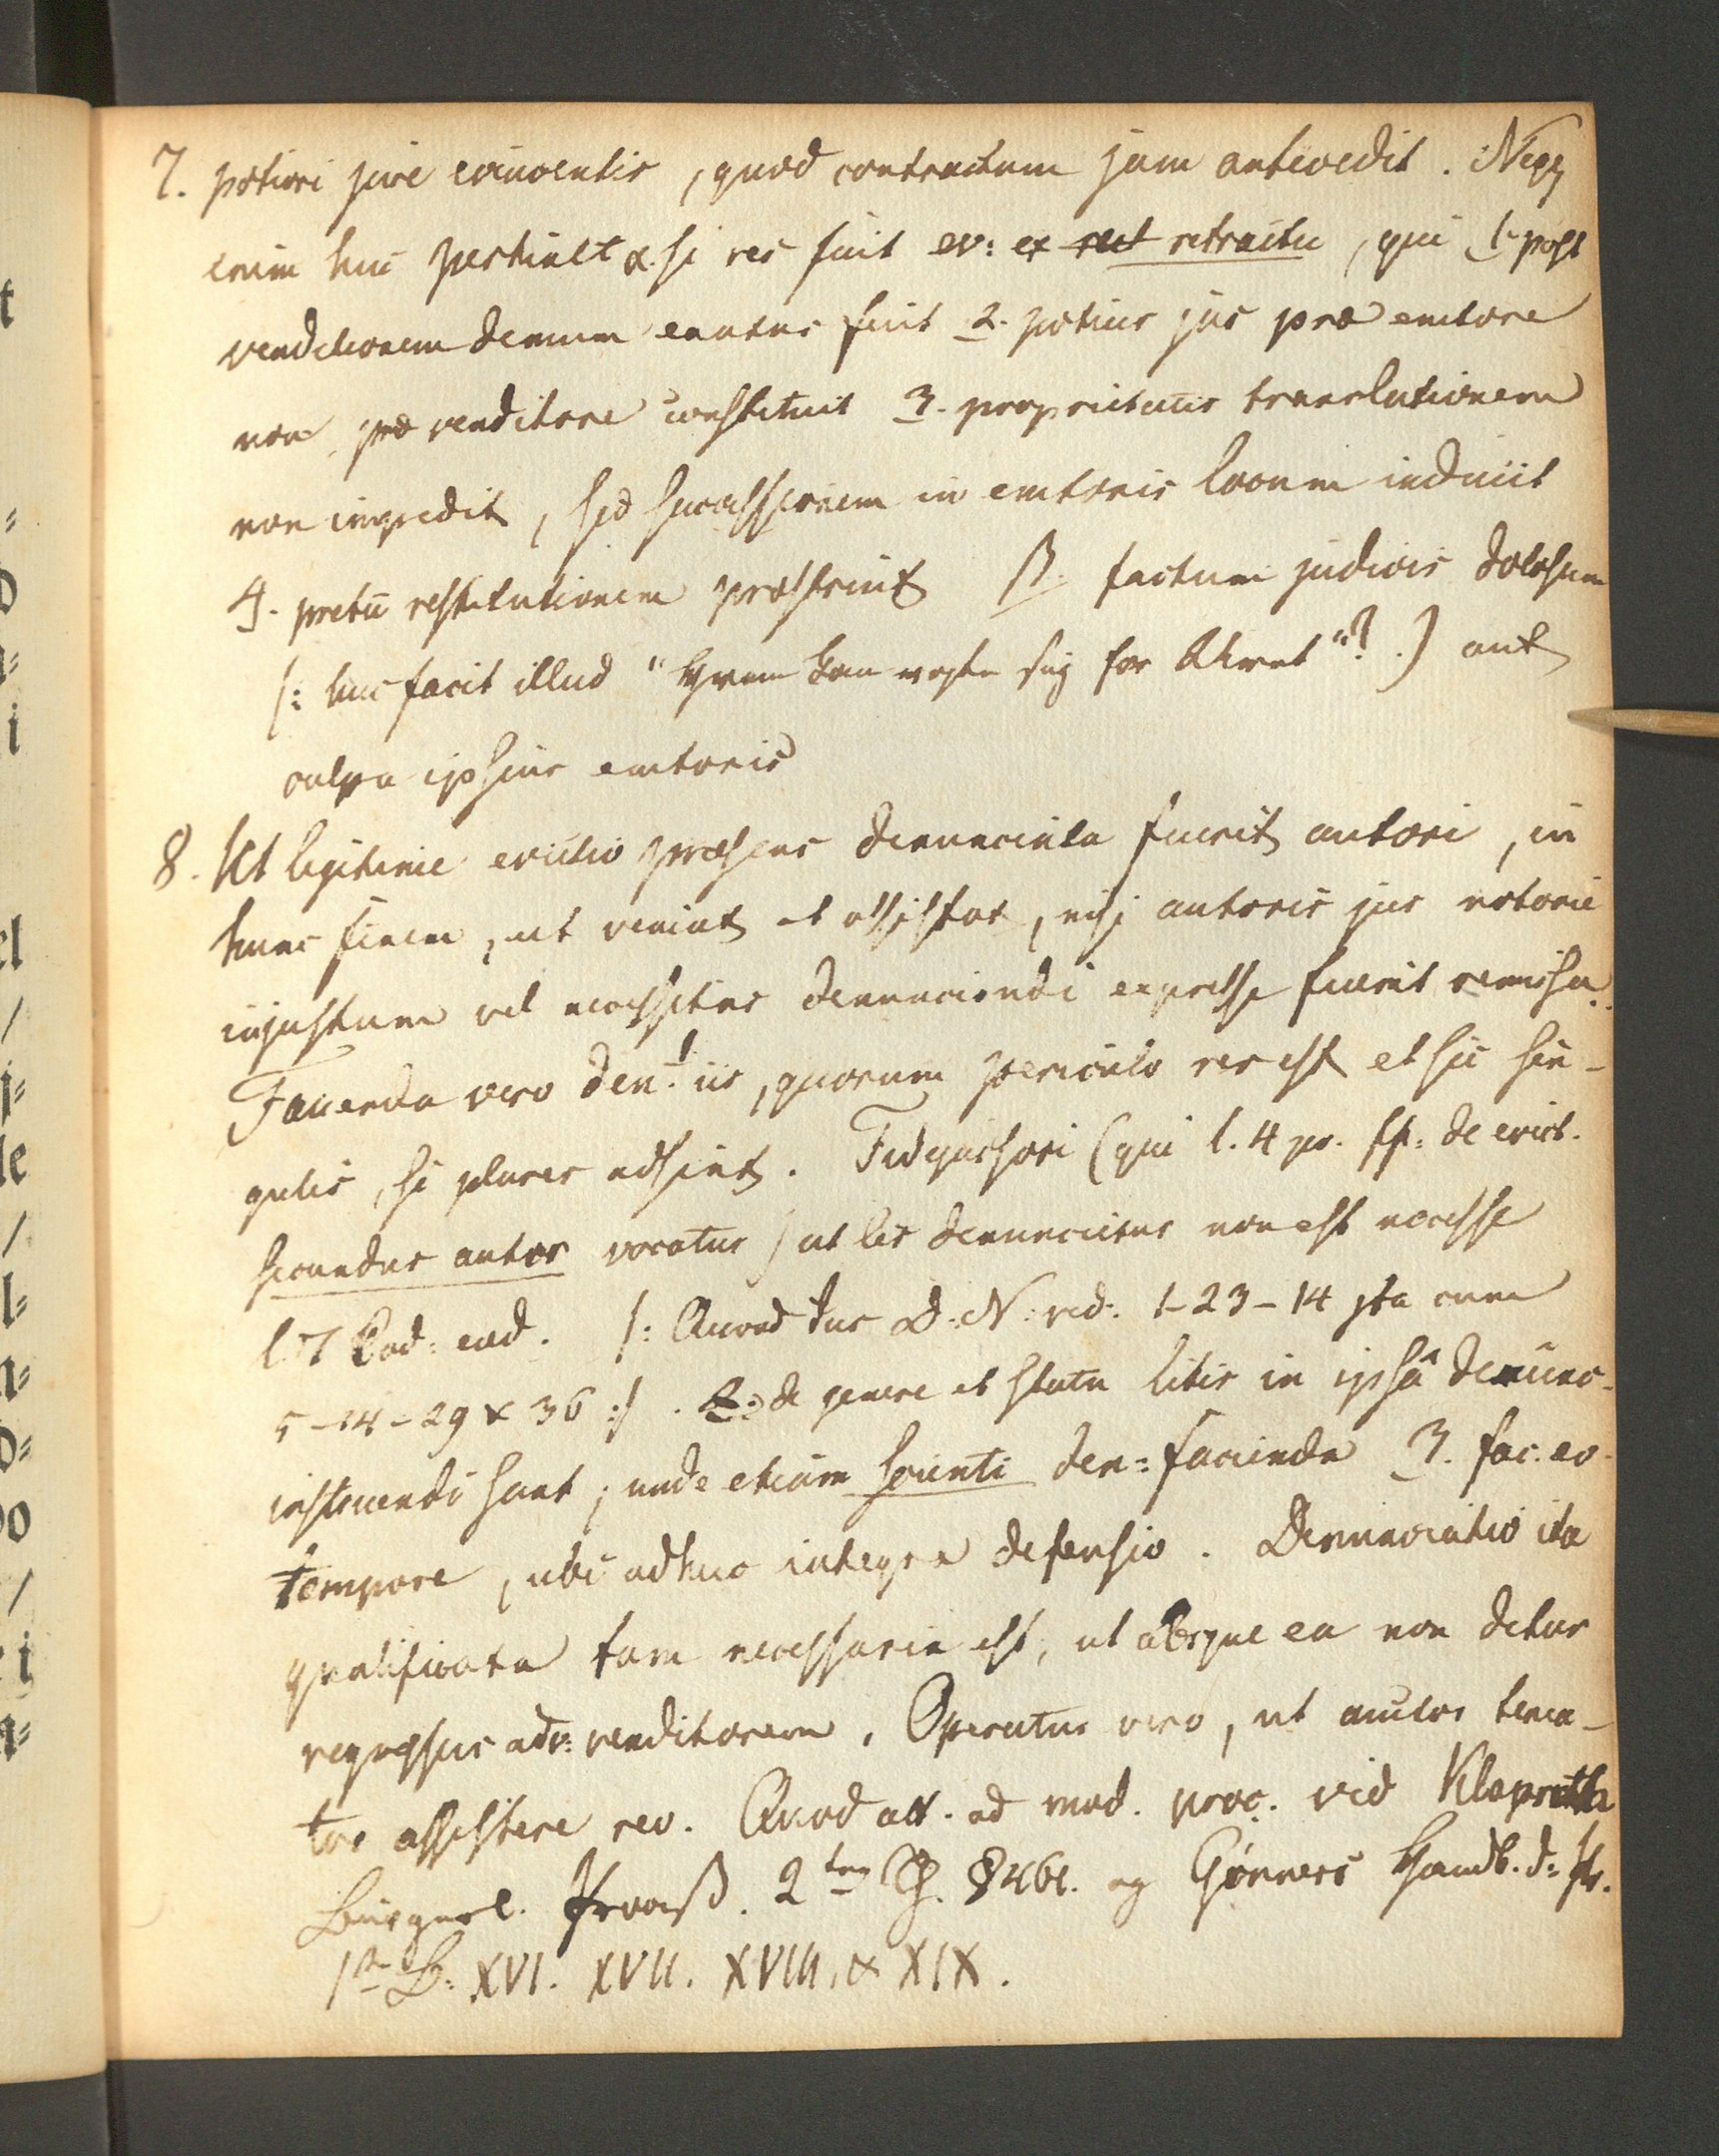 7. potiori jure evincentis, quod contractum jam antecedit. Neqz
enim huc pertinet α. si res fuit ev: ex retractu, qui 1. post
venditionem demum enatus fuit 2. potius jus præ emtore
non præ venditore constituit 3. proprietatis translationem
non impedit, sed successionem in emtoris locum inducit
4. pretii restitutionem præstruit β. factum judicis dolosum
/: huc facit illud "Hvem kan vogte sig for Uhret"? .) aut
culpa ipsius emtoris
8. Ut legitime evictio præsens denunciata fuerit autori, in
hunc finem, ut veniat et assistat, nisi autoris jus notorie
injustum vel necessitas denunciandi expresse fuerit remissa.
Facienda vero den: iis, quorum periculo res est et sic sin-
gulis, si plures adsint. Fidejussori (qui l. 4 pr. ff: de evict.
secundus autor vocatur) ut lis denuncietur non est necesse
l. 7 Cod: eod. /: Quoad Jus D: N: vid: 1-23-14 jta cum
5-14-29 & 36 :/ . 2: de genere et statu litis in ipsâ denunc-
instruendi sunt; unde etiam scienti den: facienda 3. fac. eo
tempore, ubi adhuc integra defensio. Denunciatio ita
qualificata tam necessaria est, ut absque ea non detur
regressus adv: venditorem. Operatur vero, ut autor tenea-
tur assistere reo. Quod att. ad mod. proc. vid Klaproth
Bürgerl. Prozeß. 2ten Th. § 461. og Gönners Handb. d: Pr.
1ste B: XVI. XVII. XVIII. & XIX.